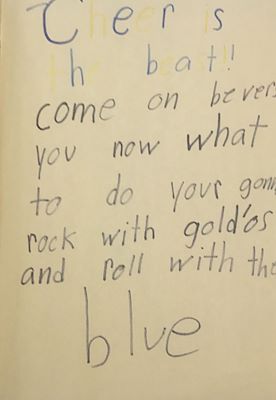 Cheer is
the beat!!
come on bevers
you now what
to do your gonn
rock with gold'os
and roll with the
blue